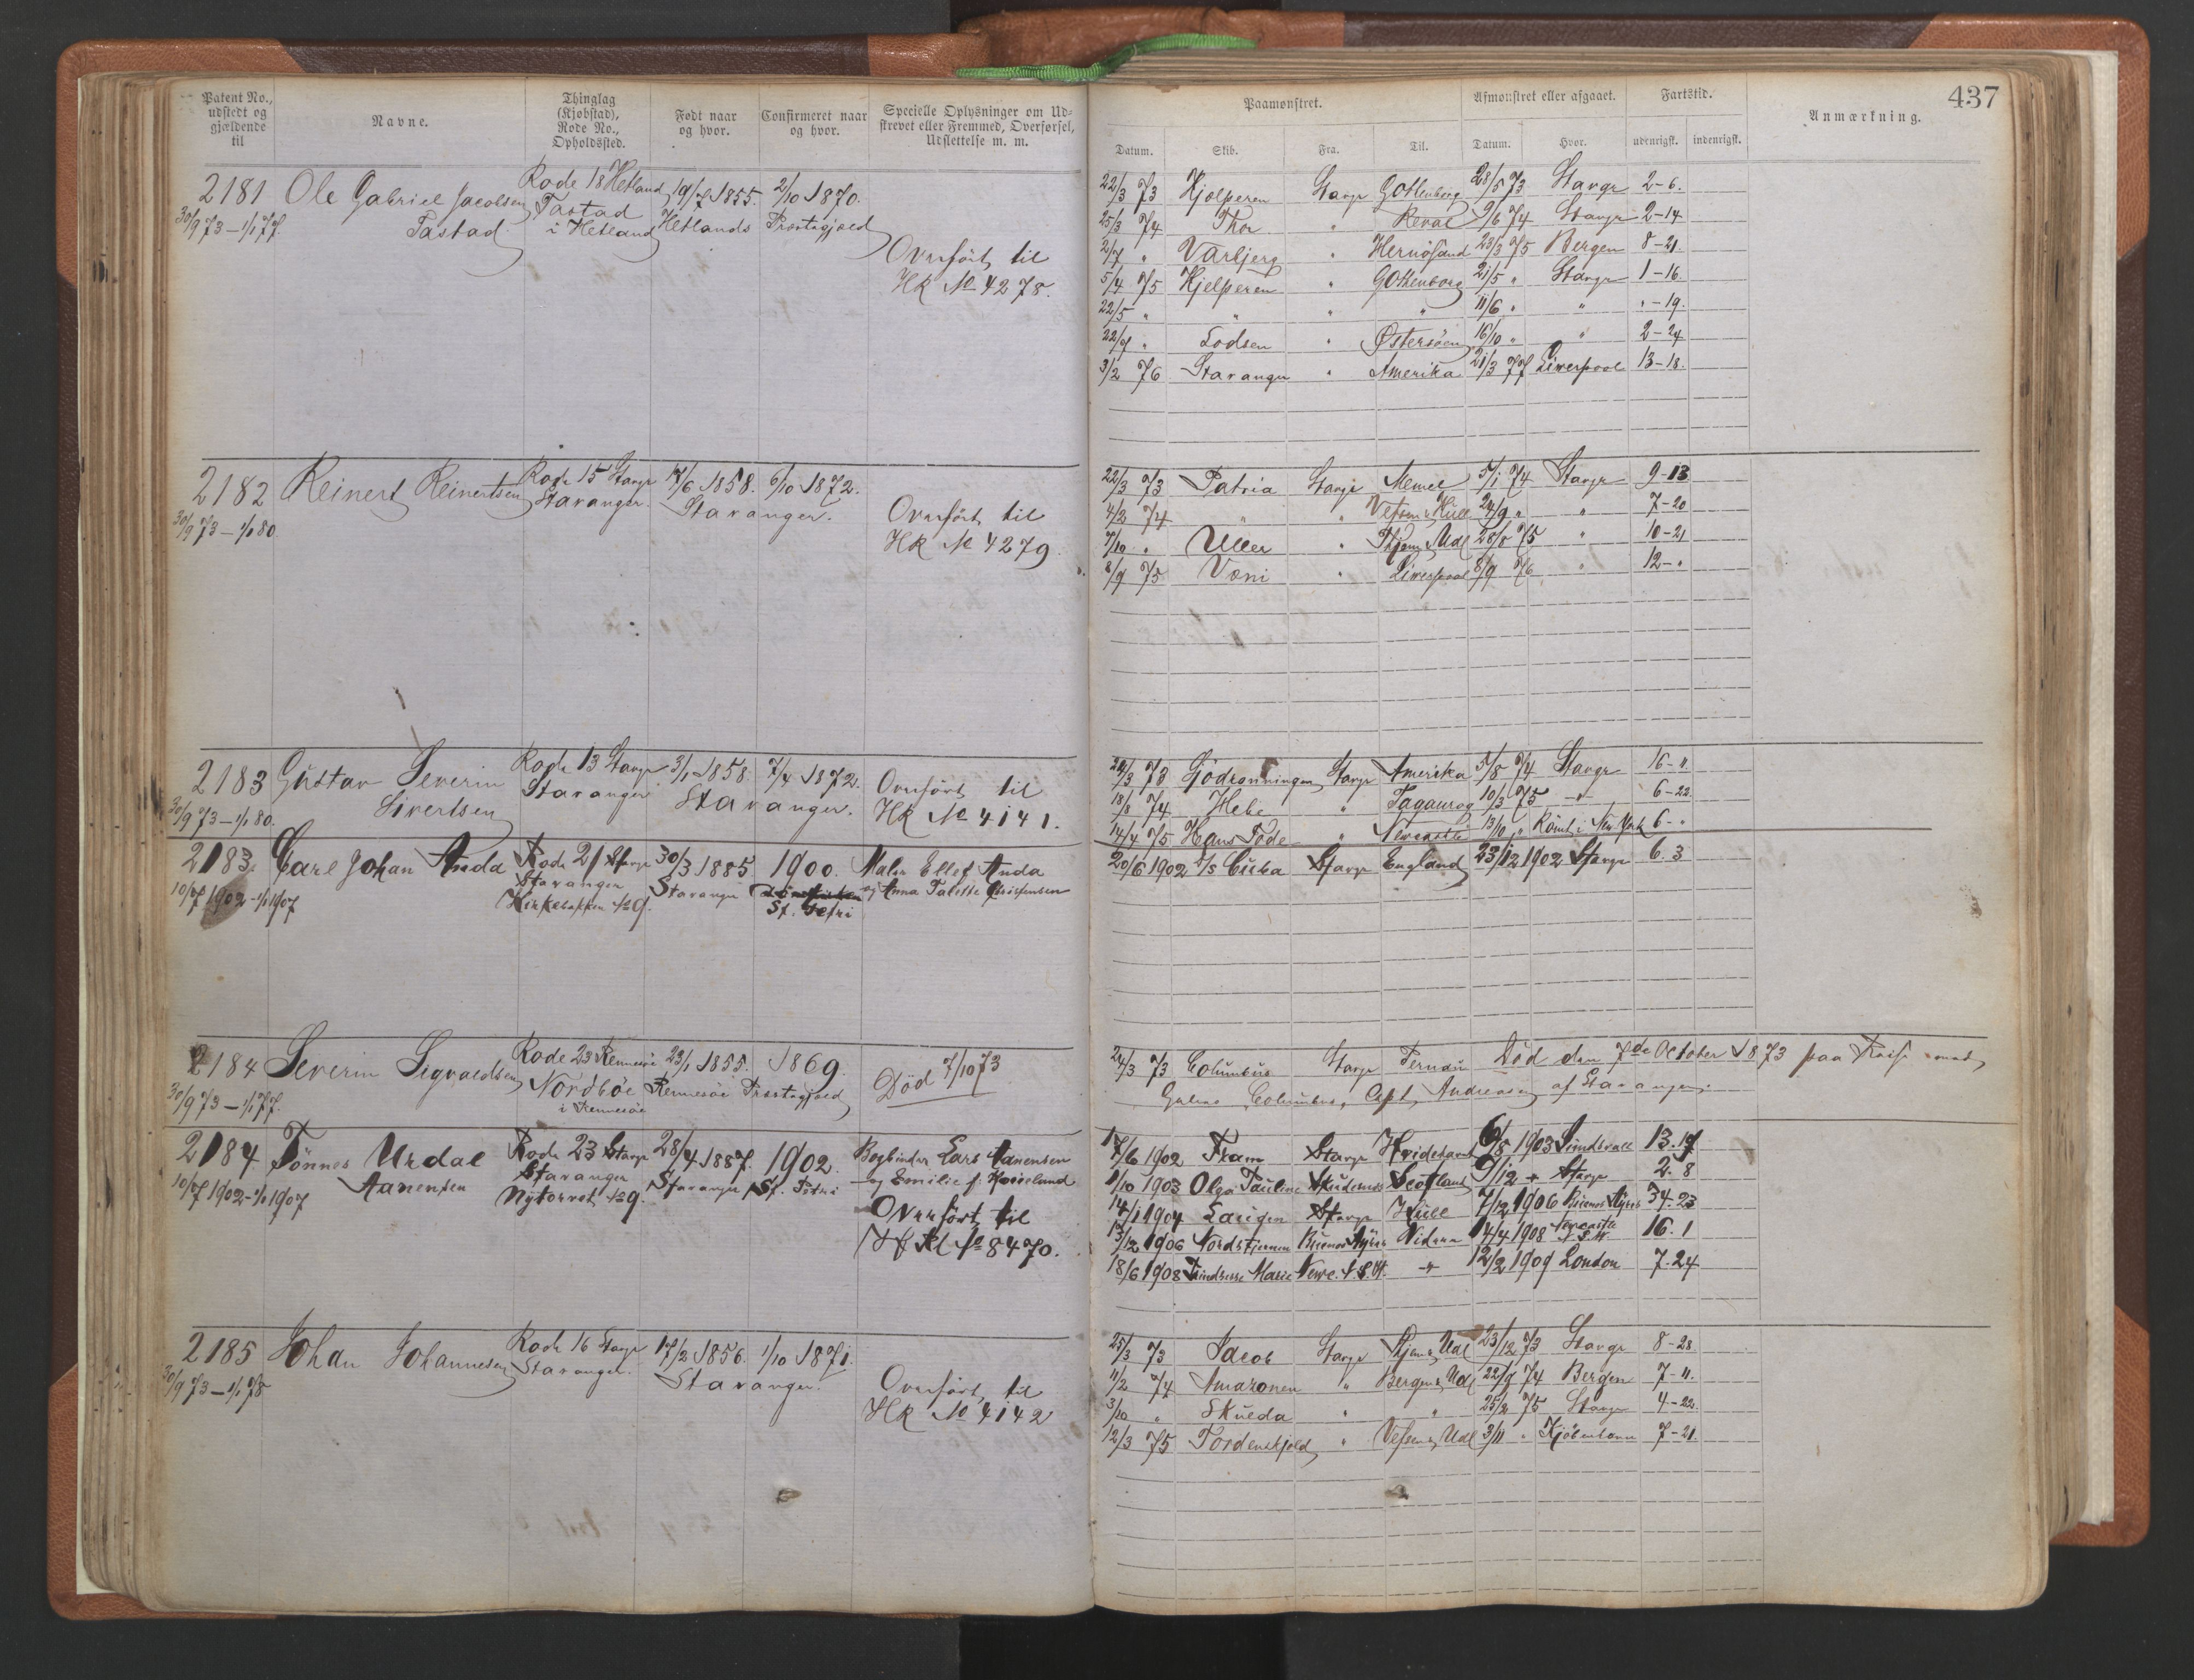 Patent No., udstedt og gjældende til
Navne.
Thinglag (Kjøbstad), Rode No., Opholdssted.
Født naar og hvor.
Confirmeret naar og hvor.
Specielle Oplysninger om Udskrevet eller Fremmed, Overførsel, Udslettelse m. m.
Paamønstret.
Afmønstret eller afgaaet.
Fartstid.
Anmærkning.
437
Datum. Skib. Fra. Til. Datum. Hvor. udenrigsk. indenrigsk.
2181 Ole Gabriel Jacobsen Rode 18 Hetland 19/7 1855. 2/10 1870.
30/9 73 – 1/1 77. Tastad Tastad i Hetland Hetlands Præstegjæld
Overført til
HR No 4278.
22/3 73 Hjelperen Stavgr Gothenborg 28/5 73 Stavgr 2-6.
25/3 74 Thor " Reval 9/6 74 Stavgr 2-14
2/7 " Varbjerg " Hernøsand 23/3 75 Bergen 8-21.
5/4 75 Hjelperen " Gothenborg 21/5 " Stavgr 1-16.
22/5 " " " " 11/6 " " "-19.
22/7 " Lodsen " Østersøen 16/10 " " 2-24
3/2 76 Stavanger " Amerika 21/3 77 Liverpool 13-18.
2182 Reinert Reinertsen Rode 15 Stavgr 17/6 1858. 6/10 1872.
30/9 73 – 1/1 80 Stavanger. Stavanger.
Overført til
HR No 4279.
22/3 73 Patria Stavgr Memel 5/1 74 Stavgr 9-13
4/2 74 " " Hull 24/9 " " 7-20
7/10 " Uller " Udl 28/8 75 " 10-21
8/9 75 Voni " Liverpool 8/9 76 " 12-"
2183 Gustav Severin Rode 13 Stavgr 3/1 1858. 7/4 1872.
30/9 73 – 1/1 80. Sivertsen Stavanger Stavanger.
Overført til
HR No 4141.
24/3 73 Stavgr Amerika 5/8 74 Stavgr 16-"
18/8 74 Hebe " Taganrog 10/3 75 -"- 6-22.
14/4 75 Hans Tode " Newcastle 13/10 " Rømt i New York 6-"
2183. Carl Johan Anda Rode 21 Stavgr 30/3 1885 1900. Maler Ellef Anda
10/7 1902 – 1/1 1907 Stavanger Stavanger St. Petri og Anna Talette
Kirkebakken No 9.
20/6 1902 D/S Cuba Stavgr England 23/12 1902 Stavgr 6.3
2184 Severin Sigvaldsen Rode 23 Rennesøe 23/1 1855. 1869. Død 7/10 73
30/9 73 – 1/1 77. Nordbøe i Rennesøe Rennesøe Præstegjæld
24/3 73 Columbus Stavgr Pernau Død den 7de October 1873 paa Reise med
Columbus, Capt. Andreasen af Stavanger.
2184 Tönnes Urdal Rode 23 Stavgr 28/4 1887. 1902. Bogbinder Lars Aanensen
10/7 1902 – 1/1 1907 Aanensen Stavanger Stavanger St. Petri og Emilie f.
Nytorvet No 9.
Overført til
No 8470.
17/6 1902 Fram Stavgr 6/8 1903 Sundsvall 13.19
1/10 1903 Olga Pauline Skudesnes Scotland 9/12 " Stavgr 2.8
14/1 1904 Stavgr Hull 7/12 1906 Buenos Ayres 34.23
13/12 1906 Nordstjernen Buenos Ayres 14/4 1908 Newcastle N.S.W. 16.1
18/6 1908 Prindsesse Marie Newc. N.S.W. -"- 12/2 1909 London 7.24
2185 Johan Johannesen Rode 16 Stavgr 17/2 1856. 1/10 1871.
30/9 73 – 1/1 78 Stavanger. Stavanger.
Overført til
HR No 4142
25/3 73 Jacob Stavgr Udl 23/12 73 Stavgr 8-28.
11/2 74 Amazonen " Bergen & Udl 22/9 74 Bergen 7-11.
3/10 " Skulda " " 25/2 75 Stavgr 4-22.
12/3 75 Tordenskjold " Udl 3/11 " Kjøbenhavn 7-21.